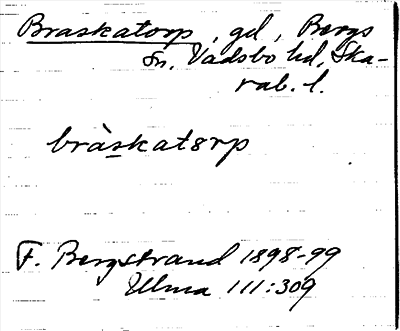 Braskatorp, gd, Bergs
sn. Vadsbo hd, Ska-
rab. l.
bràskatorp
F. Bergstrand 1898-99
Ulma 111:309